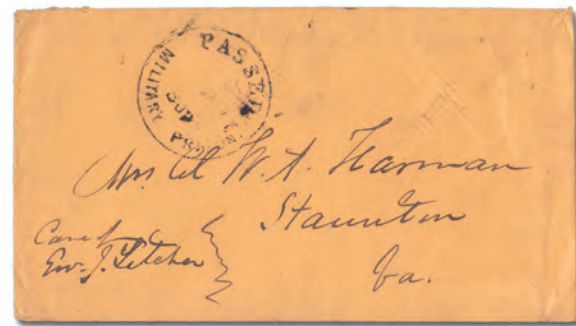 PASSED
MILITARY
SUP
Mrs. Col W. A. Harman
Staunton
Care of
Gov. J. Letcher
Va.